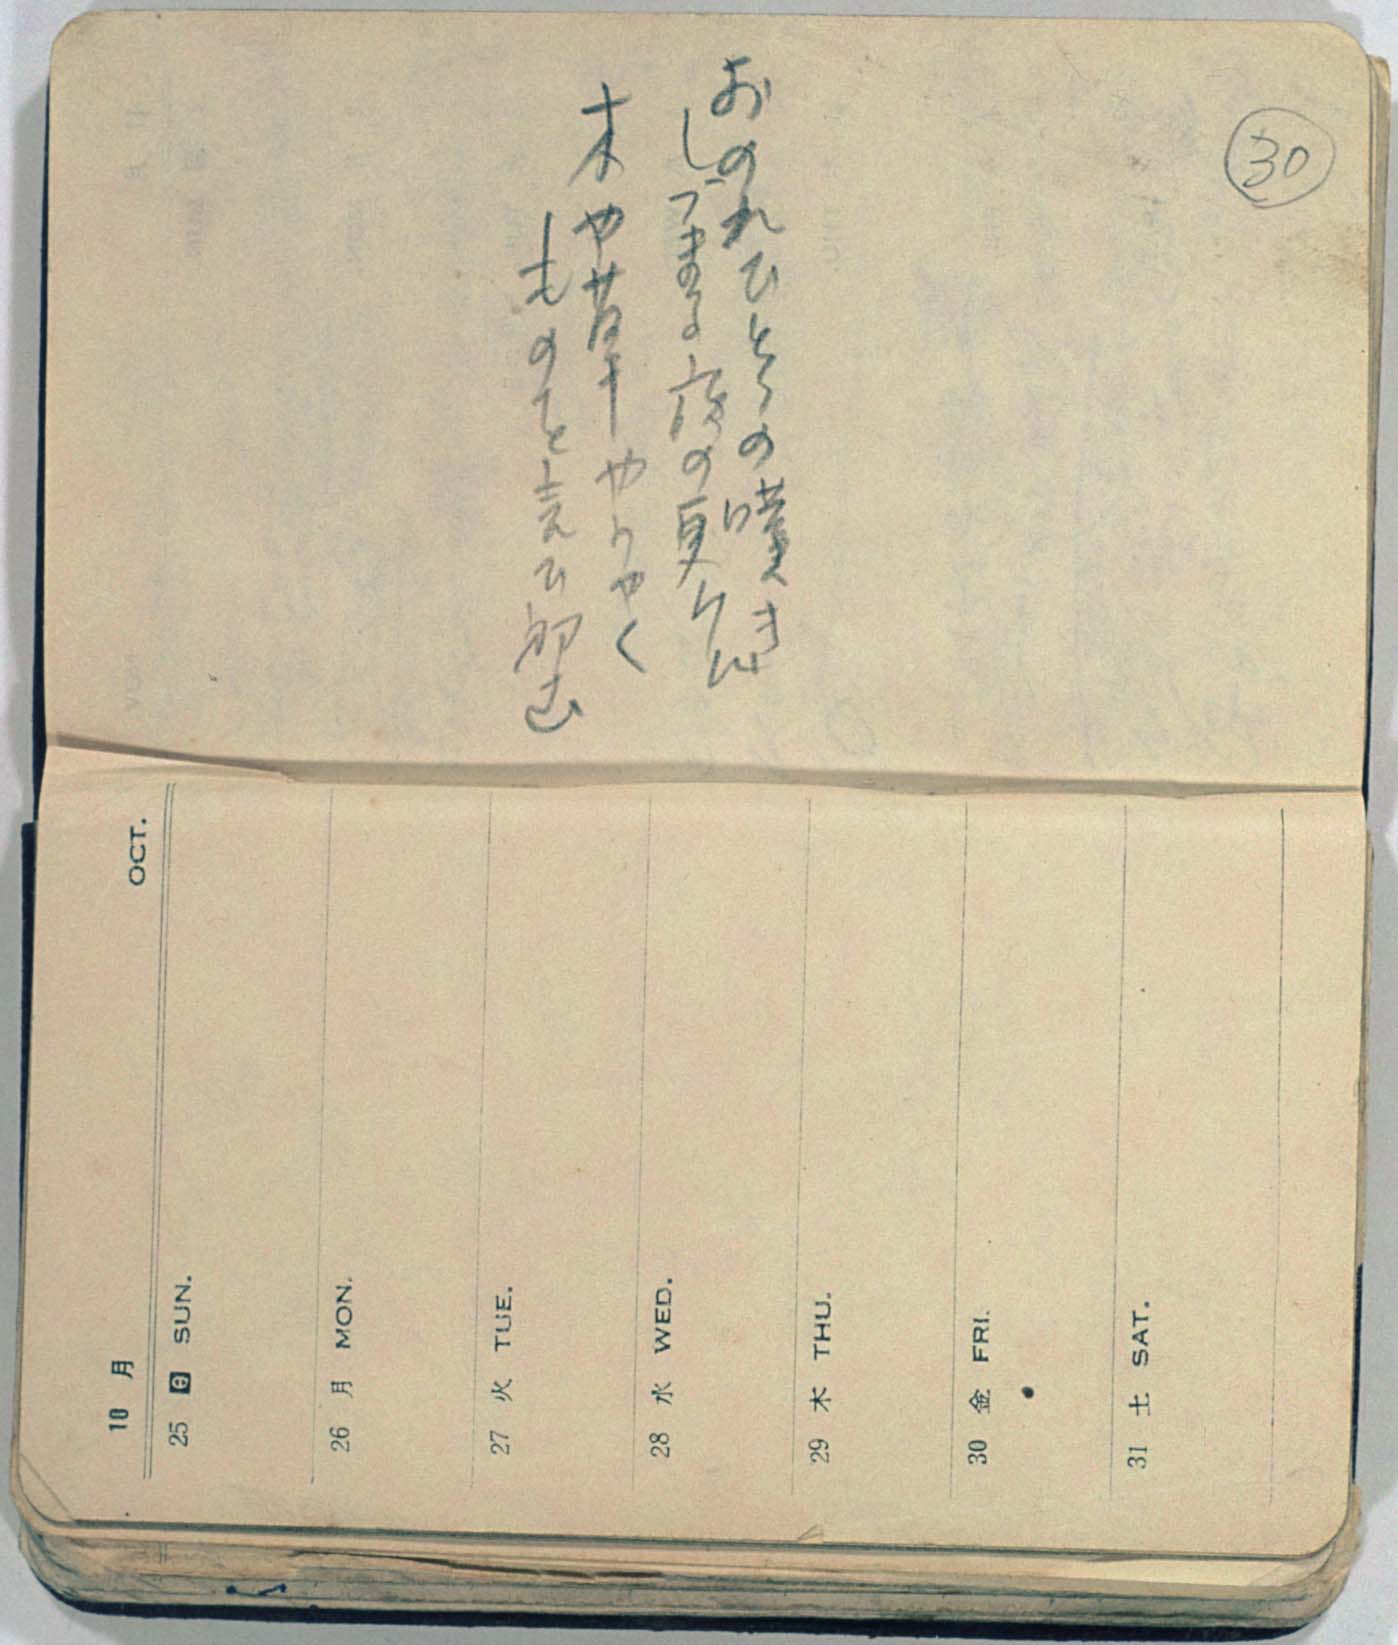 30
おのれひとりの嘆き
しづまる夜の更けに
木や草やうやく
ものを言ひ初む
10月 OCT.
25 日 SUN.
26 月 MON.
27 火 TUE.
28 水 WED.
29 木 THU.
30 金 FRI.
31 土 SAT.